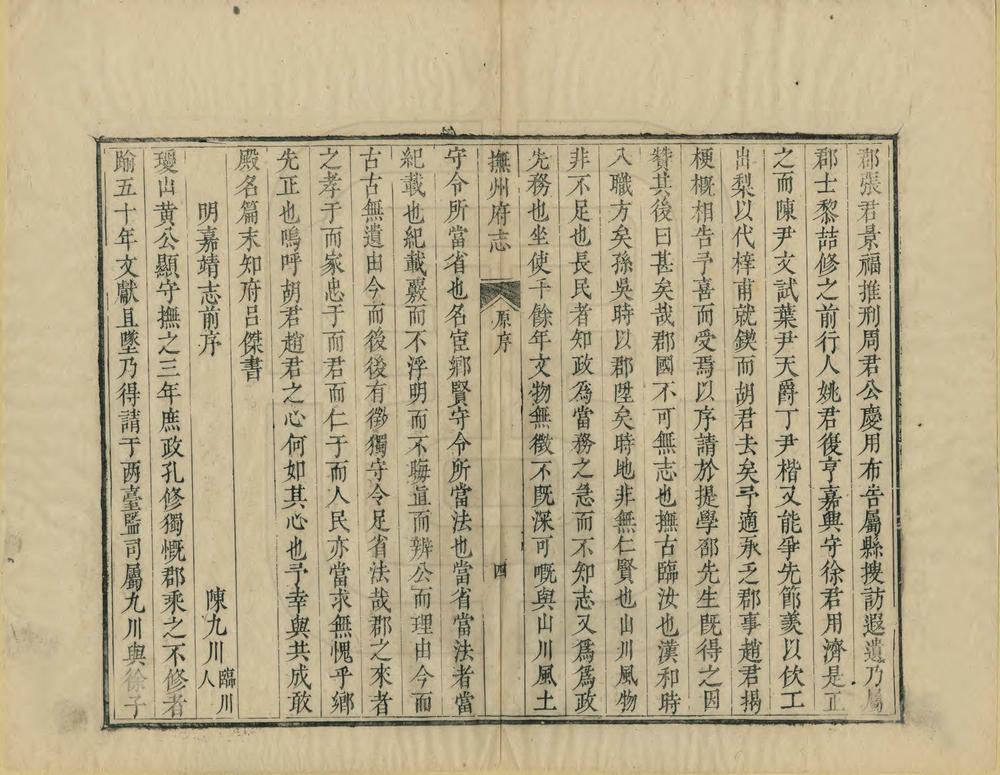 郡張君景福推刑周君公慶用布告屬縣搜訪遐遺乃屬
郡士黎喆修之前行人姚君復亨嘉興守徐君用濟是正
之而陳尹文試葉尹天爵丁尹楷又能爭先節羨以佽工
出梨以代梓甫就鍥而胡君去矣予適承乏郡事趙君揭
梗槪相告予喜而受焉以序請於提學邵先生旣得之因
贊其後曰甚矣哉郡國不可無志也撫古臨汝也漢和時
入職方矣孫吳時以郡陞矣時地非無仁賢也山川風物
非不足也長民者知政爲當務之急而不知志又爲爲政
先務也坐使千餘年文物無徵不旣深可嘅與山川風土
撫州府志
原序
四
守令所當省也名宦鄉賢守令所當法也當省當法者當
紀載也紀載覈而不浮明而不晦直而辨公而理由今而
古古無遺由今而後後有徵獨守令足省法哉郡之來者
之孝于而家忠于而君而仁于而人民亦當求無愧乎鄉
先正也嗚呼胡君趙君之心何如其心也予幸與共成敢
殿名篇末知府呂傑書
明嘉靖志前序
陳九川臨川人
璦山黃公顯守撫之三年庶政孔修獨慨郡乘之不修者
踰五十年文獻且墜乃得請于两臺監司屬九川與徐子